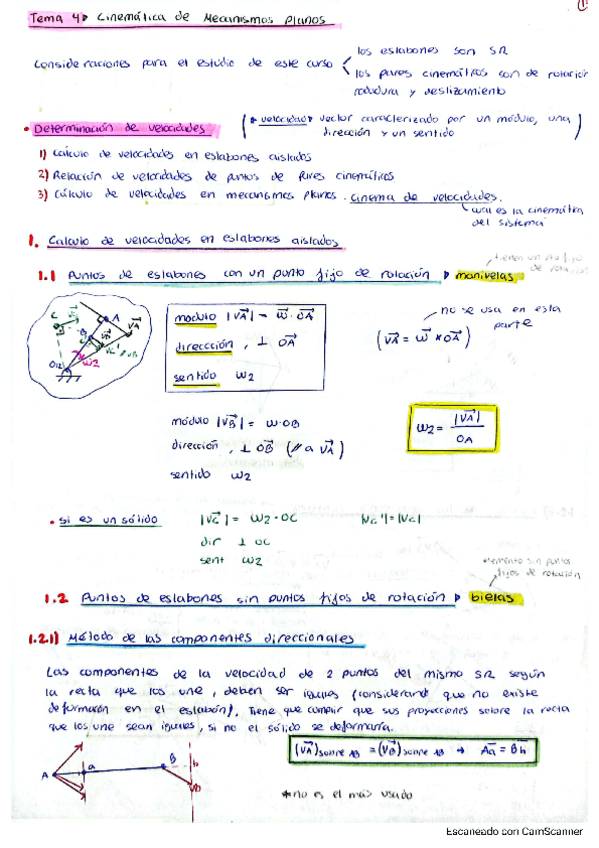 Tema 4▷ Cinemática de Mecanismos planos
Consideraciones para el estudio de este curso
los eslabones son SR
los pares cinemáticos son de rotación
rodadura y deslizamiento
• Determinación de velocidades
(▸ velocidad▸ vector caracterizado por un módulo, una
dirección y un sentido)
1) Cálculo de velocidades en eslabones aislados
2) Relación de velocidades de puntos de pares cinemáticos
3) Cálculo de velocidades en mecanismos planos. Cinema de velocidades.
cual es la cinemática
del sistema
1. Calculo de velocidades en eslabones aislados
tienen un pto fijo
de rotación
1.1 Puntos de eslabones con un punto fijo de rotación ▷ manivelas
modulo |VA| = ω · OA
dirección, ⊥ OA
sentido ω2
no se usa en esta
parte
(VA = ω × OA)
módulo |VB| = ω·OB
dirección, ⊥ OB (// a VA)
sentido ω2
ω2 = |VA| / OA
• si es un sólido |VC| = ω2 · OC |VC'| = |VC|
dir ⊥ OC
sent ω2
elemento sin puntos
fijos de rotación
1.2 Puntos de eslabones sin puntos fijos de rotación ▷ bielas
1.2.1) Método de las componentes direccionales
Las componentes de la velocidad de 2 puntos del mismo SR según
la recta que los une, deben ser iguales (considerando que no existe
deformación en el eslabón). Tiene que cumplir que sus proyecciones sobre la recta
que los une sean iguales, si no el sólido se deformaría.
(VA) sobre AB = (VB) sobre AB → Aa = Bb
A a B b
*no es el más usado
Escaneado con CamScanner